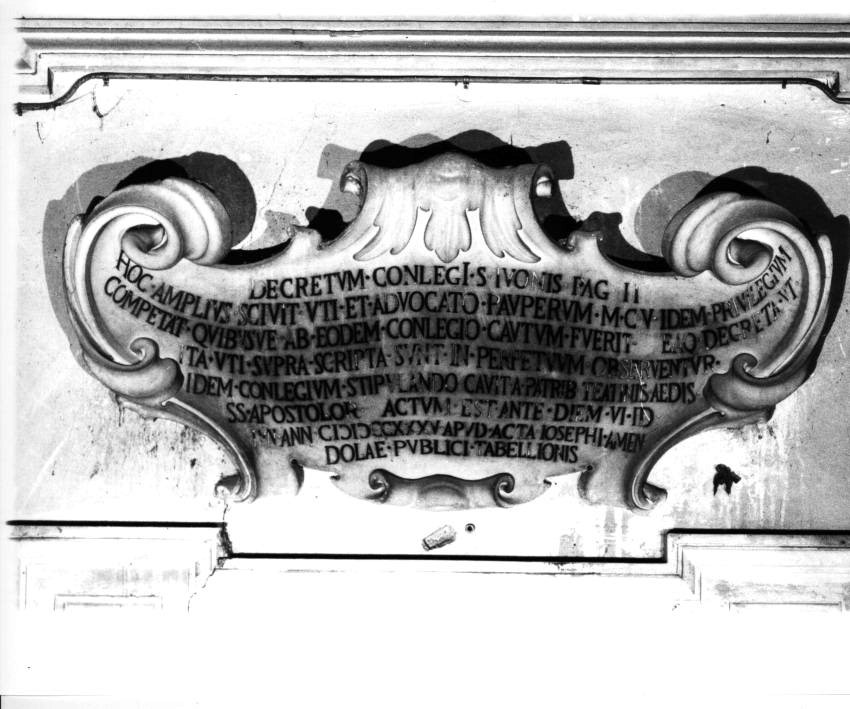 DECRETVM·CONLEGI·S·IVONIS PAG II
HOC·AMPLIVS SCIVIT·VTI·ET·ADVOCATO·PAVPERVM·M·C·V·IDEM·PRIVILEGIVM
COMPETAT·QVIBVSVE·AB·EODEM·CONLEGIO·CAVTVM·FVERIT· EAQ DECRETA·VT·
ITA·VTI·SVPRA·SCRIPTA·SVNT·IN·PERPETVVM OBSERVENTVR·
IDEM·CONLEGIVM·STIPVLANDO CAVIT·A·PATRIB TEATINIS AEDIS
SS·APOSTOLOR ACTVM·EST·ANTE·DIEM·VI·ID
ANN CIƆIƆCCXXXV APVD·ACTA IOSEPHI·AMEN
DOLAE·PVBLICI·TABELLIONIS